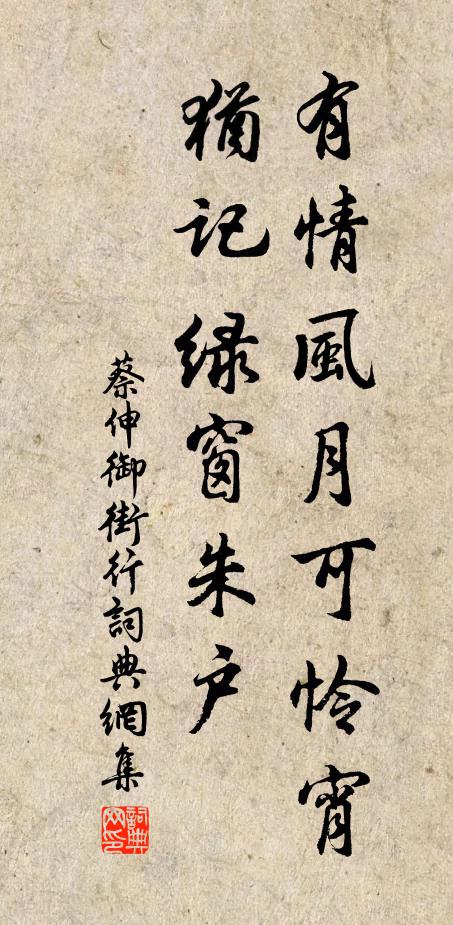 有情風月可怜宵
猶記緑窗朱户
蔡伸御街行詞典網集
詞典网印